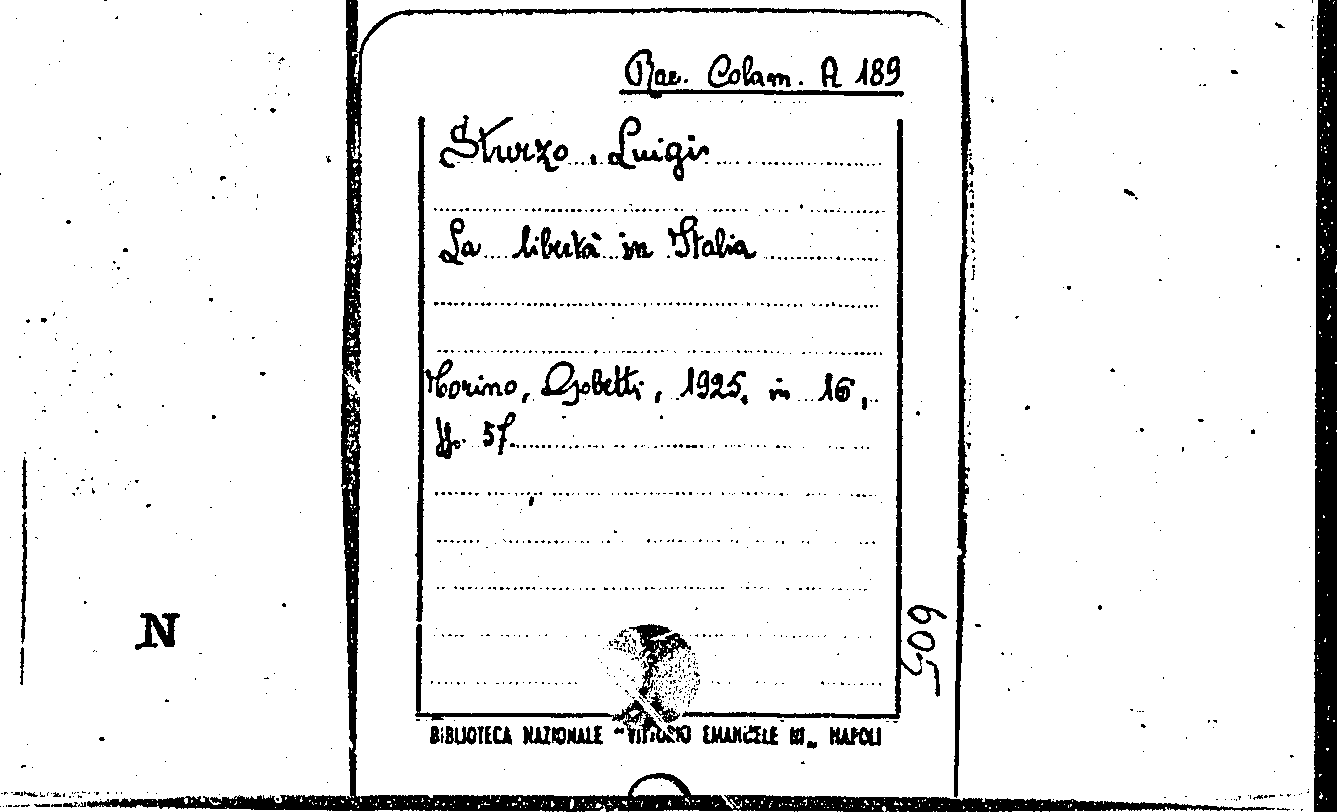 Rac. Colam. A 189
Sturzo, Luigi
La libertà in Italia
Torino, Gobetti, 1925, in 16,
pp. 57.
N
605
BIBLIOTECA NAZIONALE "VITTORIO EMANUELE III„ NAPOLI